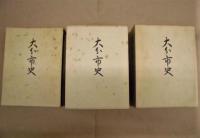 大分市史
大分市史
大分市史